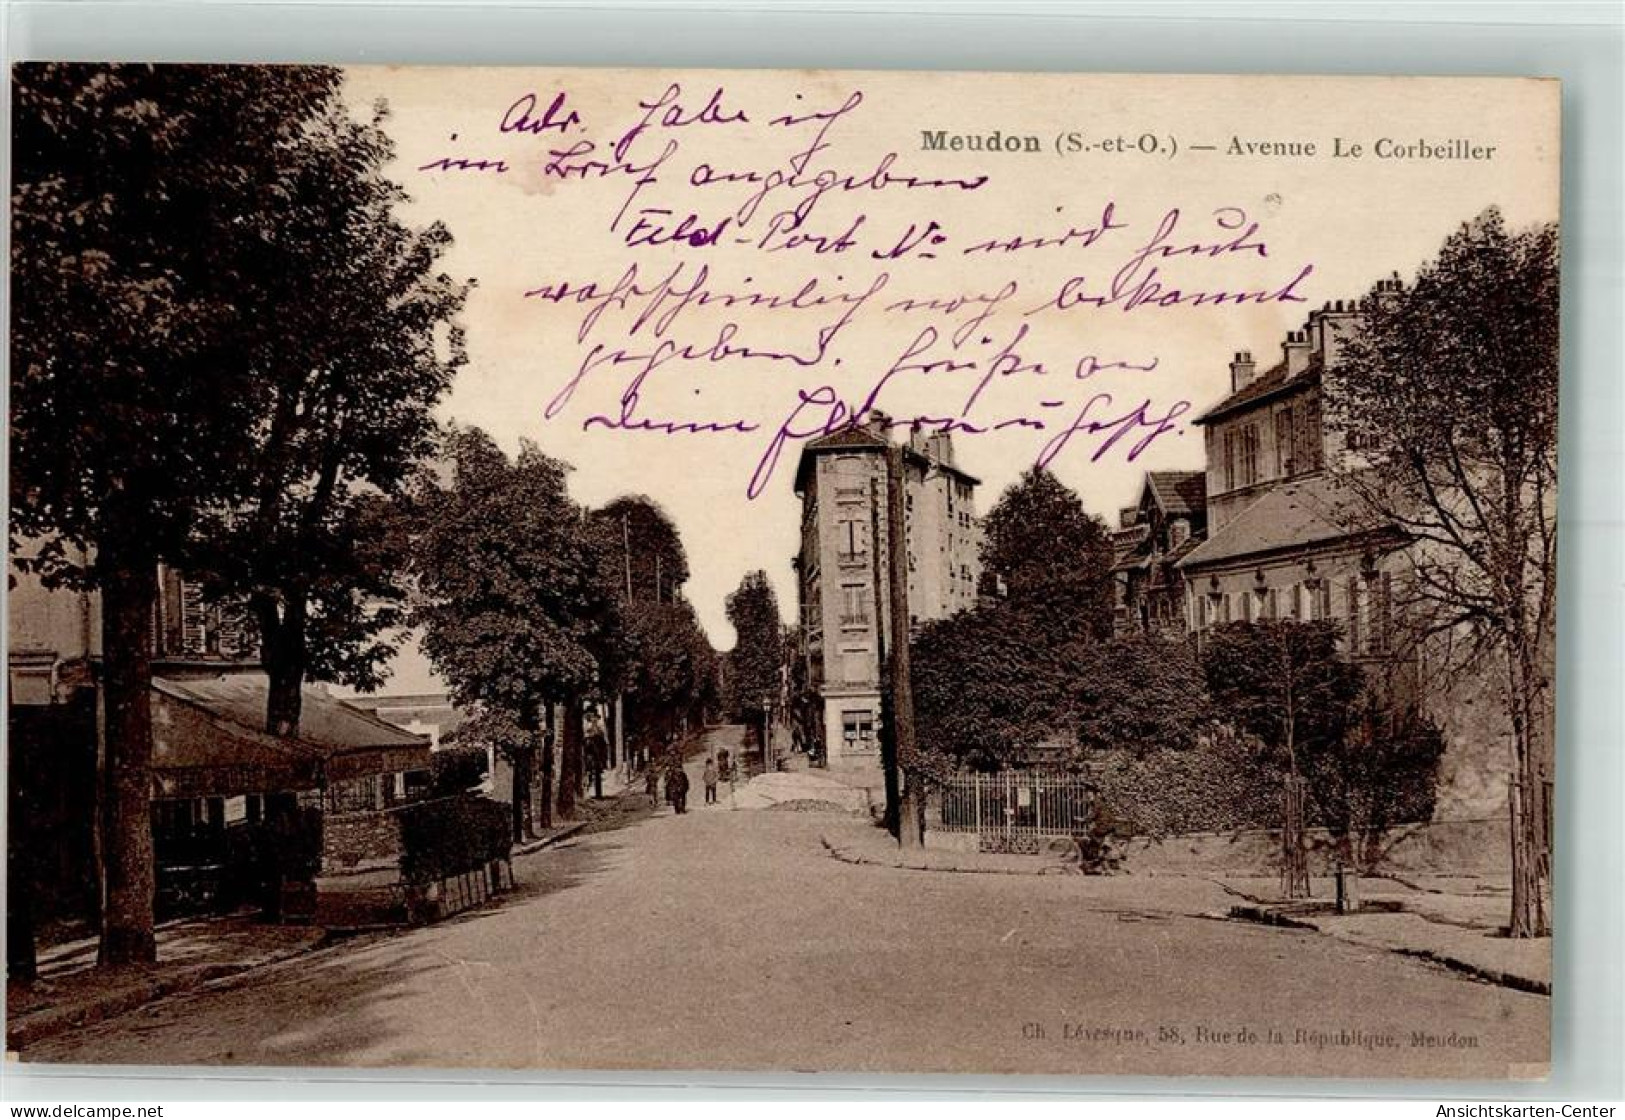 Meudon (S.-et-O.) — Avenue Le Corbeiller
Adr. habe ich
im Brief angegeben
Feld-Post No wird heute
wahrscheinlich noch bekannt
gegeben. Grüße an
Deine Eltern u Gesch.
Ch. Lévesque, 58, Rue de la République, Meudon
Ansichtskarten-Center